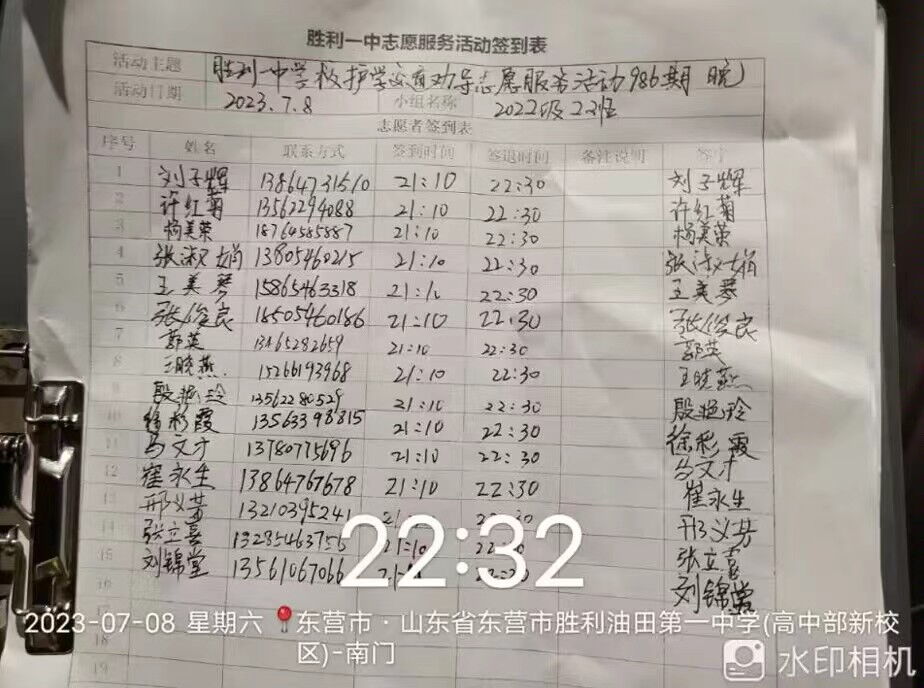 胜利一中志愿服务活动签到表
活动主题 胜利一中学校护学交通劝导志愿服务活动986期 晚
活动日期 2023.7.8 小组名称 2022级22班
志愿者签到表
序号 姓名 联系方式 签到时间 签退时间 备注说明 签字
1 刘子辉 13864731510 21:10 22:30 刘子辉
2 许红菊 13562294088 21:10 22:30 许红菊
3 杨美荣 18760585887 21:10 22:30 杨美荣
4 张淑娟 13805460215 21:10 22:30 张淑娟
5 王美琴 15865463318 21:10 22:30 王美琴
6 张俊良 18505460186 21:10 22:30 张俊良
7 郭英 21:10 22:30 郭英
8 王晓燕 15266193968 21:10 22:30 王晓燕
9 殷艳玲 13562280529 21:10 22:30 殷艳玲
10 徐彩霞 13563398815 21:10 22:30 徐彩霞
11 马文才 13780775696 21:10 22:30 马文才
12 崔永生 13864767678 21:10 22:30 崔永生
13 邢义芳 13210395241 邢义芳
14 张立喜 21:10 张立喜
15 刘锦堂 13561067066 刘锦堂
16
22:32
2023-07-08 星期六 东营市·山东省东营市胜利油田第一中学(高中部新校
区)-南门
18
19
水印相机